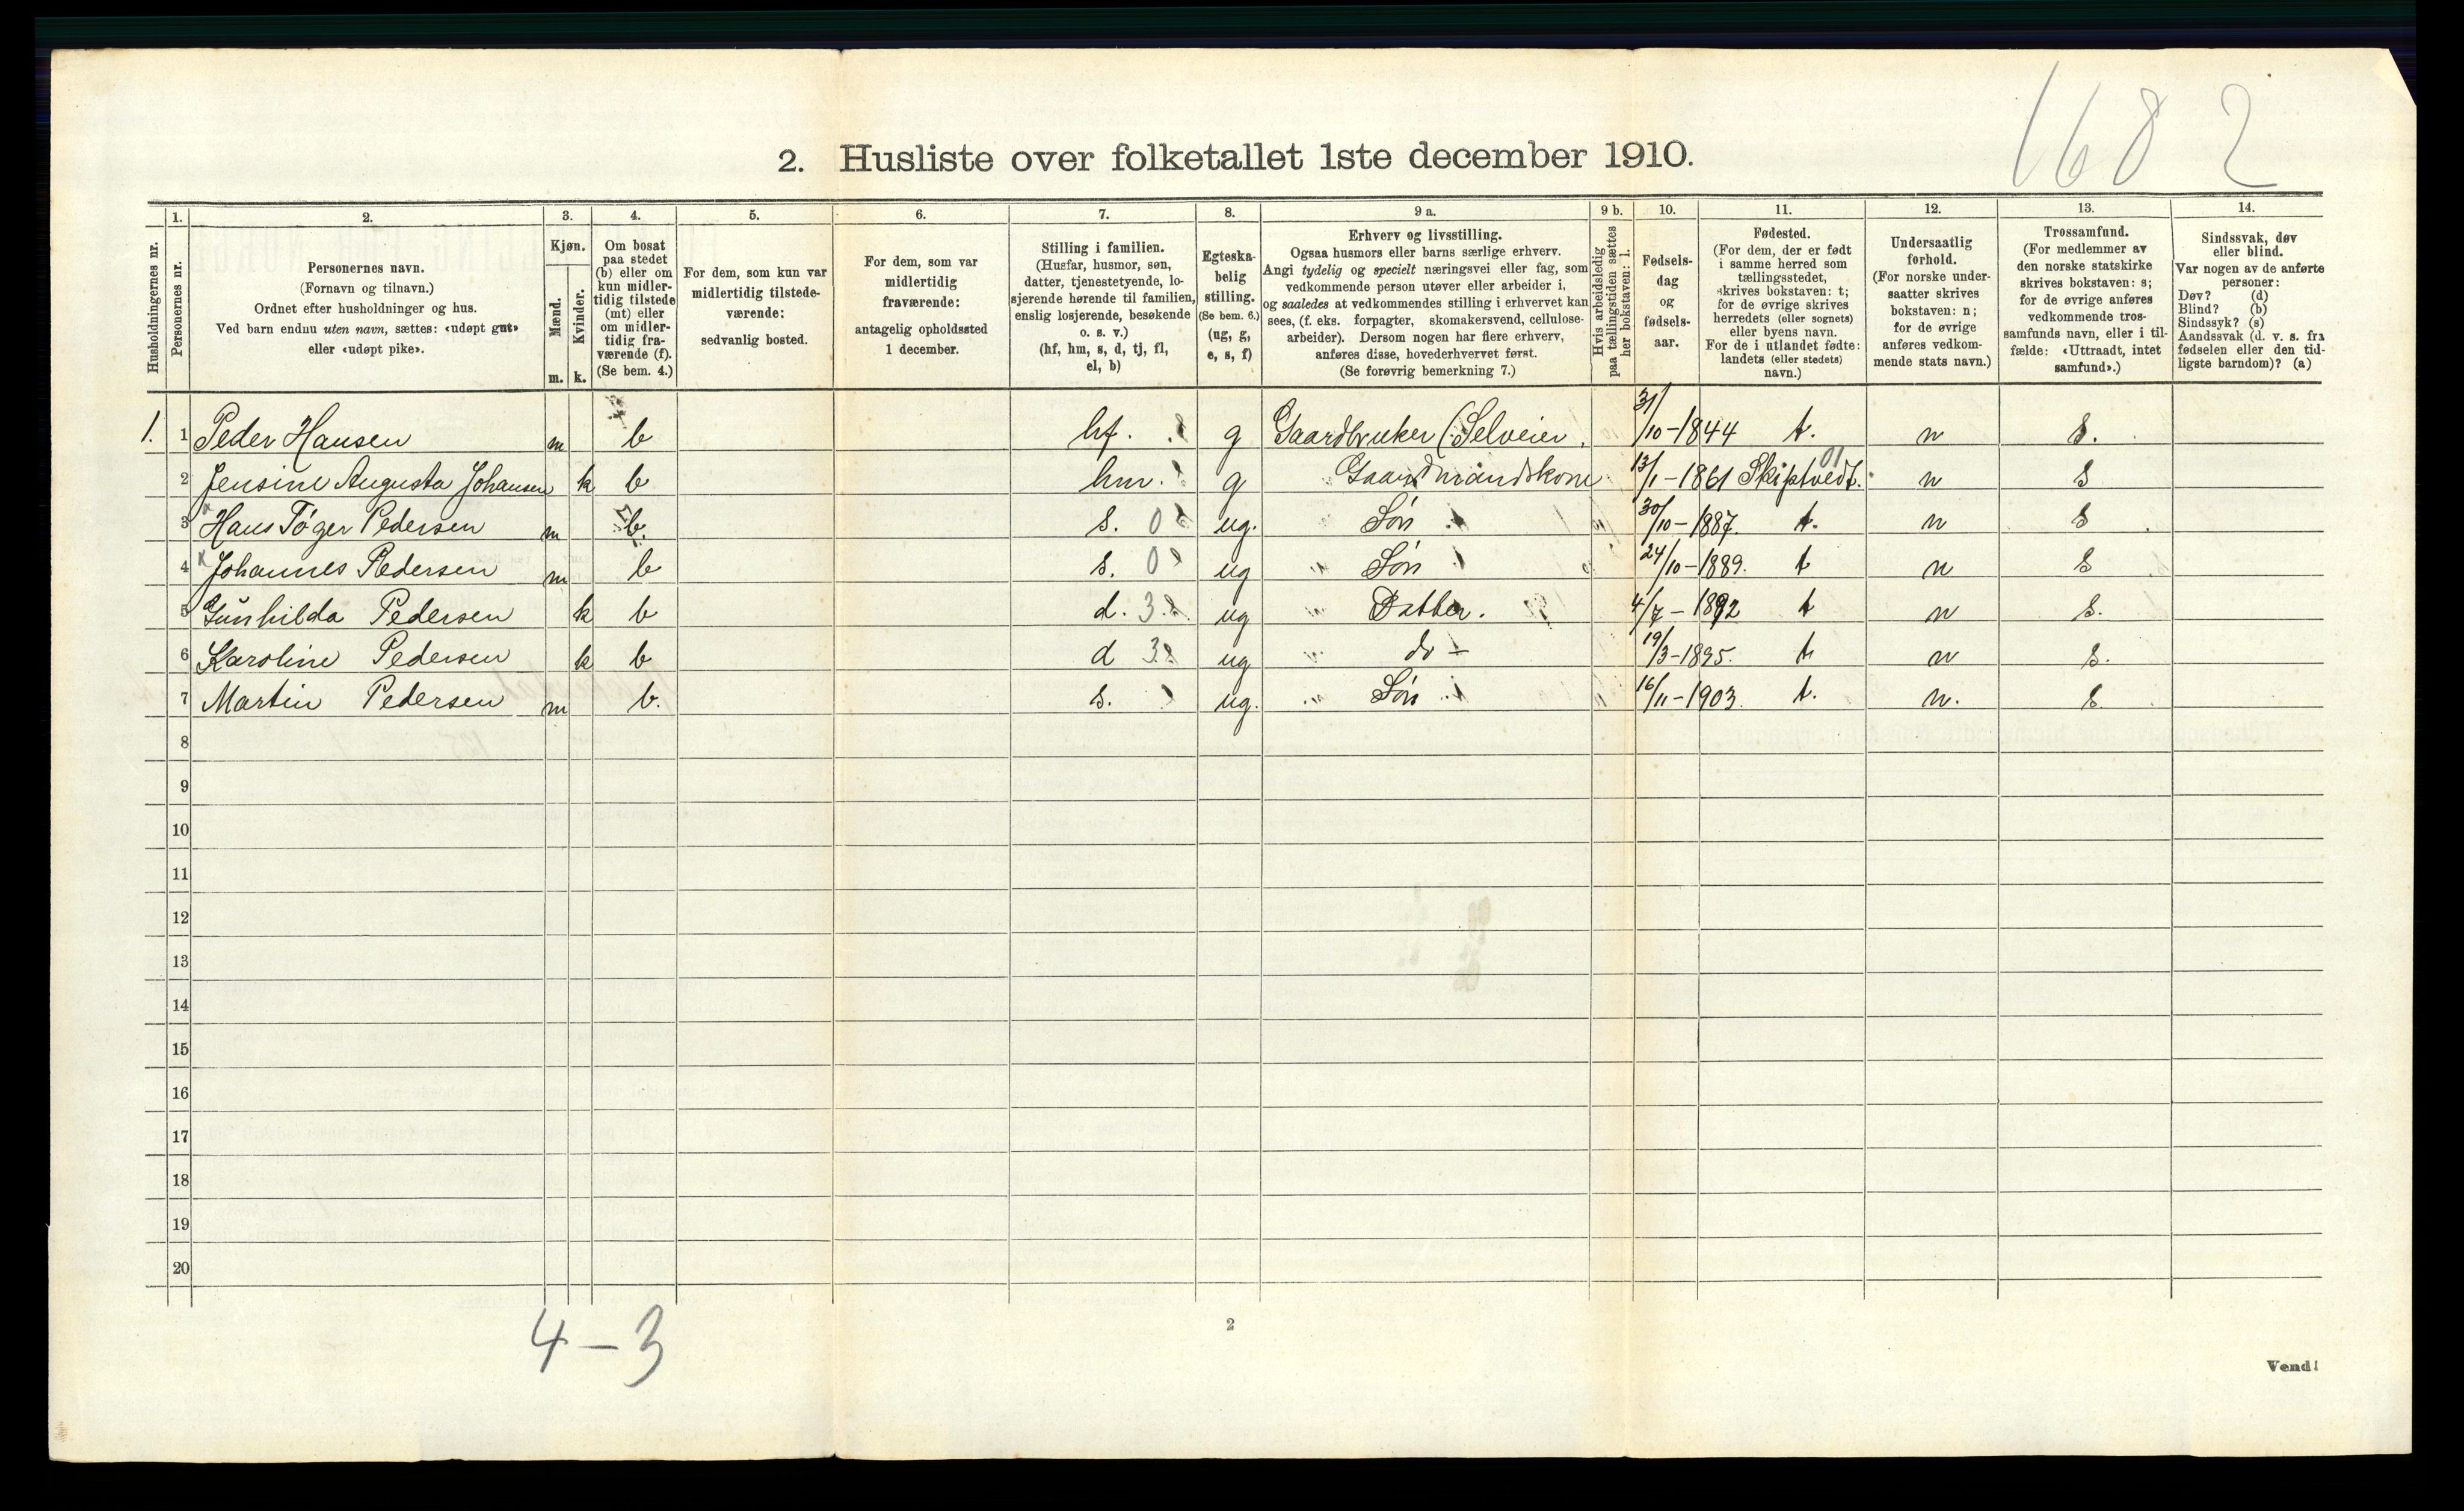 1682
2. Husliste over folketallet 1ste december 1910.
Husholdningernes nr.
1.
Personernes nr.
2.
Personernes navn.
(Fornavn og tilnavn.)
Ordnet efter husholdninger og hus.
Ved barn endnu uten navn, sættes: «udøpt gut»
eller «udøpt pike».
3.
Kjøn.
Mænd.
Kvinder.
m. k.
4.
Om bosat
paa stedet
(b) eller om
kun midler-
tidig tilstede
(mt) eller
om midler-
tidig fra-
værende (f).
(Se bem. 4.)
5.
For dem, som kun var
midlertidig tilstede-
værende:
sedvanlig bosted.
6.
For dem, som var
midlertidig
fraværende:
antagelig opholdssted
1 december.
7.
Stilling i familien.
(Husfar, husmor, søn,
datter, tjenestetyende, lo-
sjerende hørende til familien,
enslig losjerende, besøkende
o. s. v.)
(hf, hm, s, d, tj, fl,
el, b)
8.
Egteska-
belig
stilling.
(Se bem. 6.)
(ug, g,
e, s, f)
9 a.
Erhverv og livsstilling.
Ogsaa husmors eller barns særlige erhverv.
Angi tydelig og specielt næringsvei eller fag, som
vedkommende person utøver eller arbeider i,
og saaledes at vedkommendes stilling i erhvervet kan
sees, (f. eks. forpagter, skomakersvend, cellulose-
arbeider). Dersom nogen har flere erhverv,
anføres disse, hovederhvervet først.
(Se forøvrig bemerkning 7.)
9 b.
Hvis arbeidsledig
paa tællingstiden sættes
her bokstaven: l.
10.
Fødsels-
dag
og
fødsels-
aar.
11.
Fødested.
(For dem, der er født
i samme herred som
tællingsstedet,
skrives bokstaven: t;
for de øvrige skrives
herredets (eller sognets)
eller byens navn.
For de i utlandet fødte:
landets (eller stedets)
navn.)
12.
Undersaatlig
forhold.
(For norske under-
saatter skrives
bokstaven: n;
for de øvrige
anføres vedkom-
mende stats navn.)
13.
Trossamfund.
(For medlemmer av
den norske statskirke
skrives bokstaven: s;
for de øvrige anføres
vedkommende tros-
samfunds navn, eller i til-
fælde: «Uttraadt, intet
samfund».)
14.
Sindssvak, døv
eller blind.
Var nogen av de anførte
personer:
Døv? (d)
Blind? (b)
Sindssyk? (s)
Aandssvak (d. v. s. fra
fødselen eller den tid-
ligste barndom)? (a)
1. 1 Peder Hansen m b hf. g Gaardbruker (Selveier. 31/10-1844 t. n s.
2 Jensine Augusta Johansen k b hm. g Gaardmandskone 13/1-1861 Skiptvedt. 01 n s
3 Hans Tøger Pedersen m b. s. 0 ug. Søn 30/10-1887. t. n s
4 Johannes Pedersen m b s. 0 ug Søn 24/10-1889. t n s
5 Gunhilda Pedersen k b d. 3. ug Datter. 4/7-1892 t n s.
6 Karoline Pedersen k b d 3 ug do - 19/3-1895. t n s.
7 Martin Pedersen m b. s. ug. Søn 16/11-1903. t. n. s.
8
9
10
11
12
13
14
15
16
17
18
19
20
4-3
2
Vend!